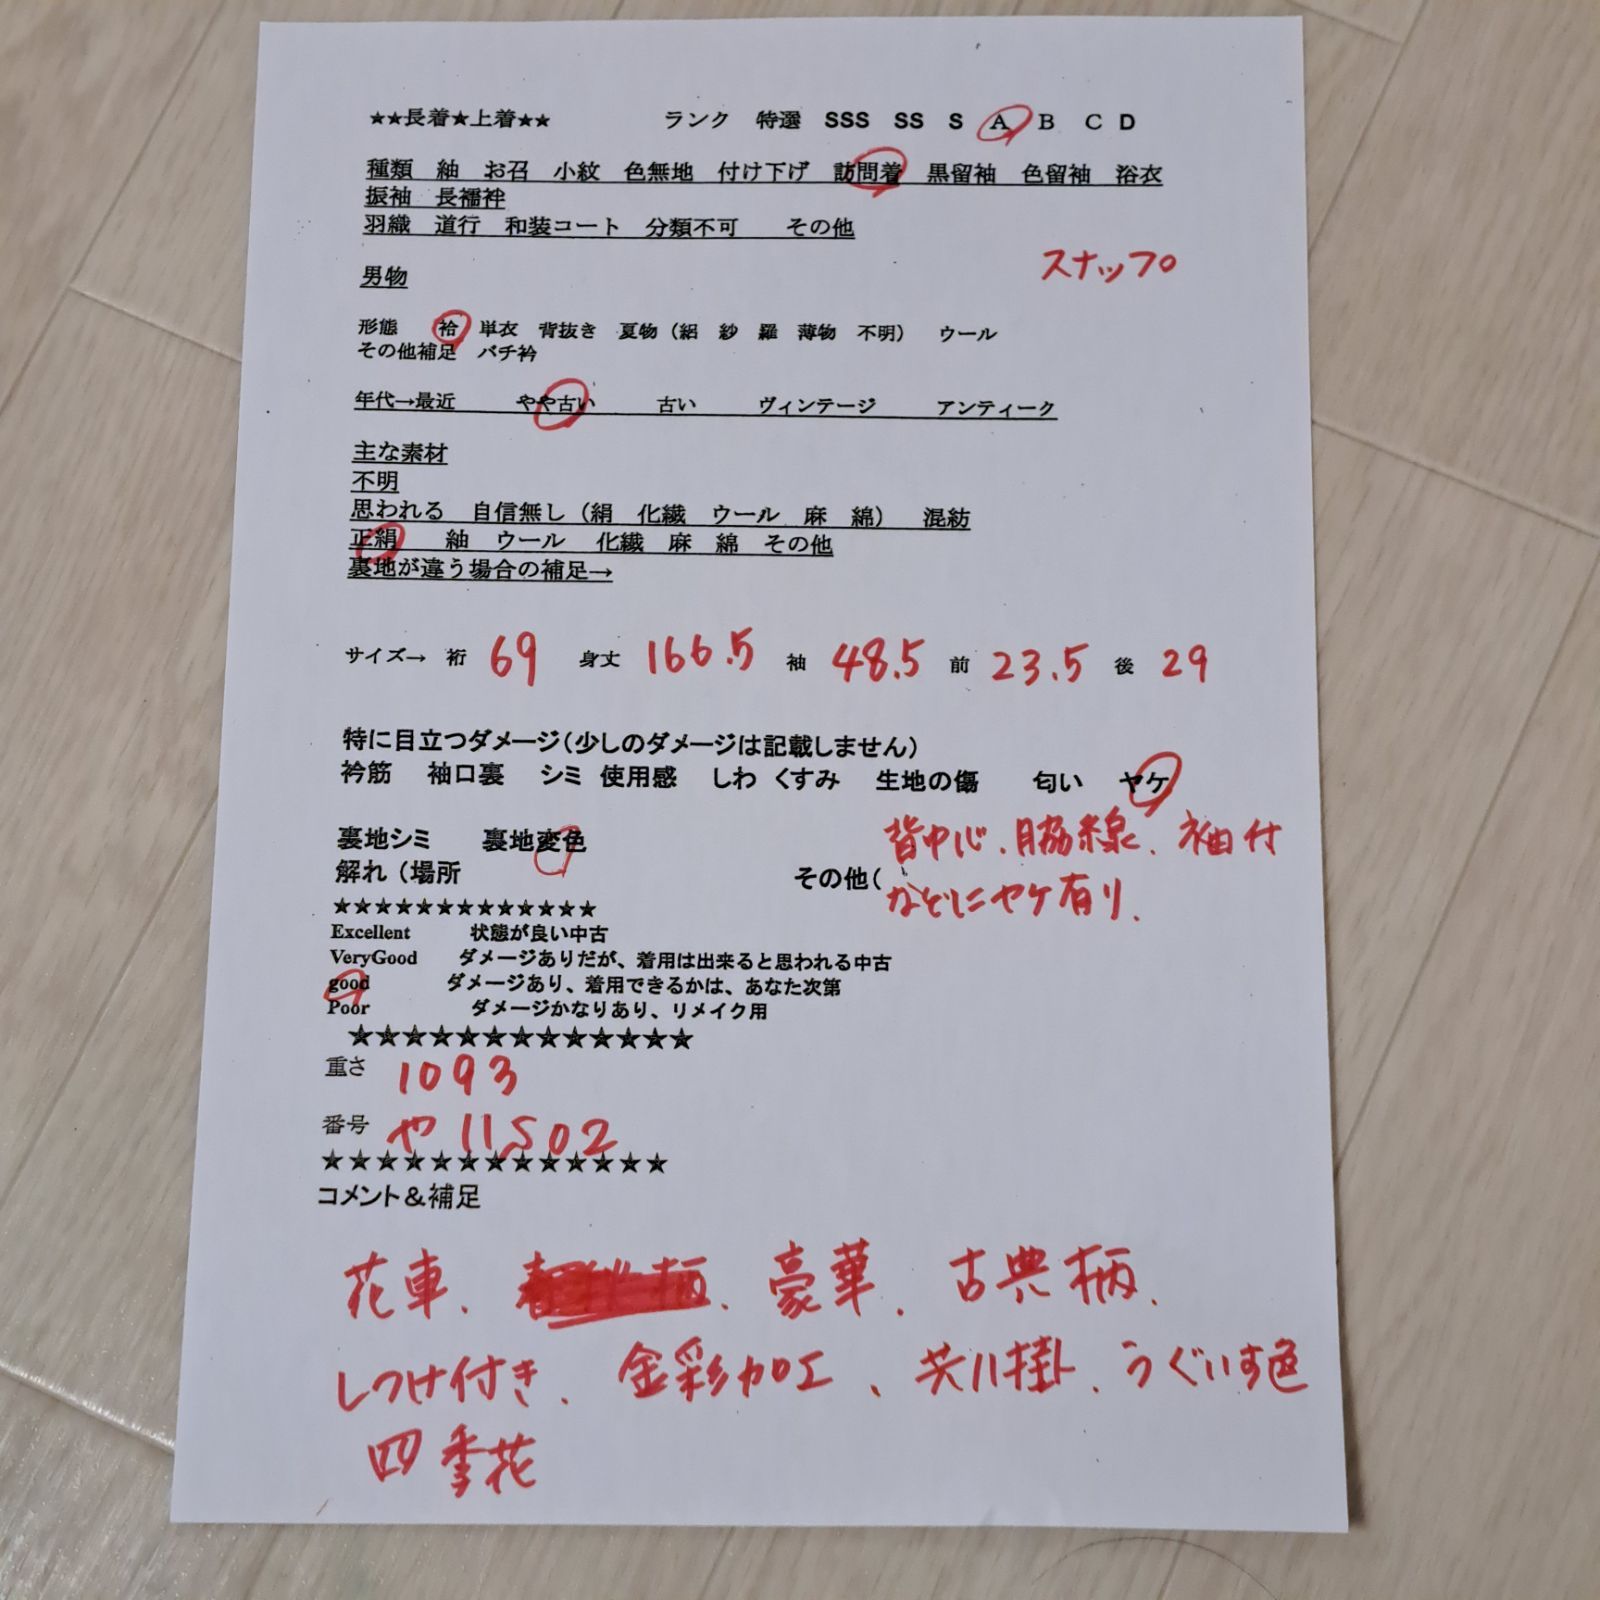 ★★長着★上着★★　ランク　特選　SSS　SS　S　A　B　C　D
種類　紬　お召　小紋　色無地　付け下げ　訪問着　黒留袖　色留袖　浴衣
振袖　長襦袢
羽織　道行　和装コート　分類不可　その他
スナップ
男物
形態　袷　単衣　背抜き　夏物（絽　紗　羅　薄物　不明）　ウール
その他補足　バチ衿
年代→最近　やや古い　古い　ヴィンテージ　アンティーク
主な素材
不明
思われる　自信無し（絹　化繊　ウール　麻　綿）　混紡
正絹　紬　ウール　化繊　麻　綿　その他
裏地が違う場合の補足→
サイズ→　裄　69　身丈　166.5　袖　48.5　前　23.5　後　29
特に目立つダメージ（少しのダメージは記載しません）
衿筋　袖口裏　シミ　使用感　しわ　くすみ　生地の傷　匂い　ヤケ
裏地シミ　裏地変色　背中心、脇線、袖付
解れ（場所　その他（　などにヤケ有り、
★★★★★★★★★★★★★
Excellent　状態が良い中古
VeryGood　ダメージありだが、着用は出来ると思われる中古
good　ダメージあり、着用できるかは、あなた次第
Poor　ダメージかなりあり、リメイク用
★★★★★★★★★★★★★
重さ　1093
番号　や11502
★★★★★★★★★★★★★
コメント＆補足
花車、豪華、古典柄、
しつけ付き、金彩加工、共八掛、うぐいす色
四季花